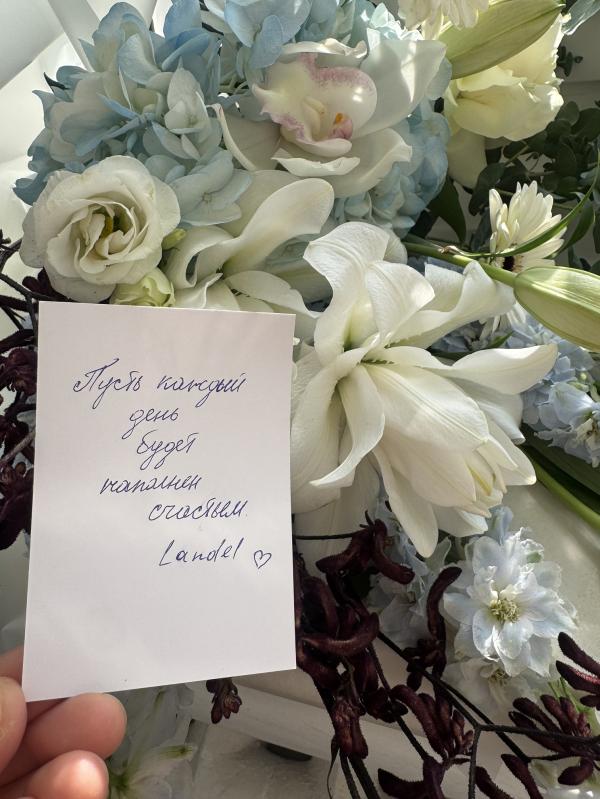 Пусть каждый
день
будет
наполнен
счастьем.
Landel ♡